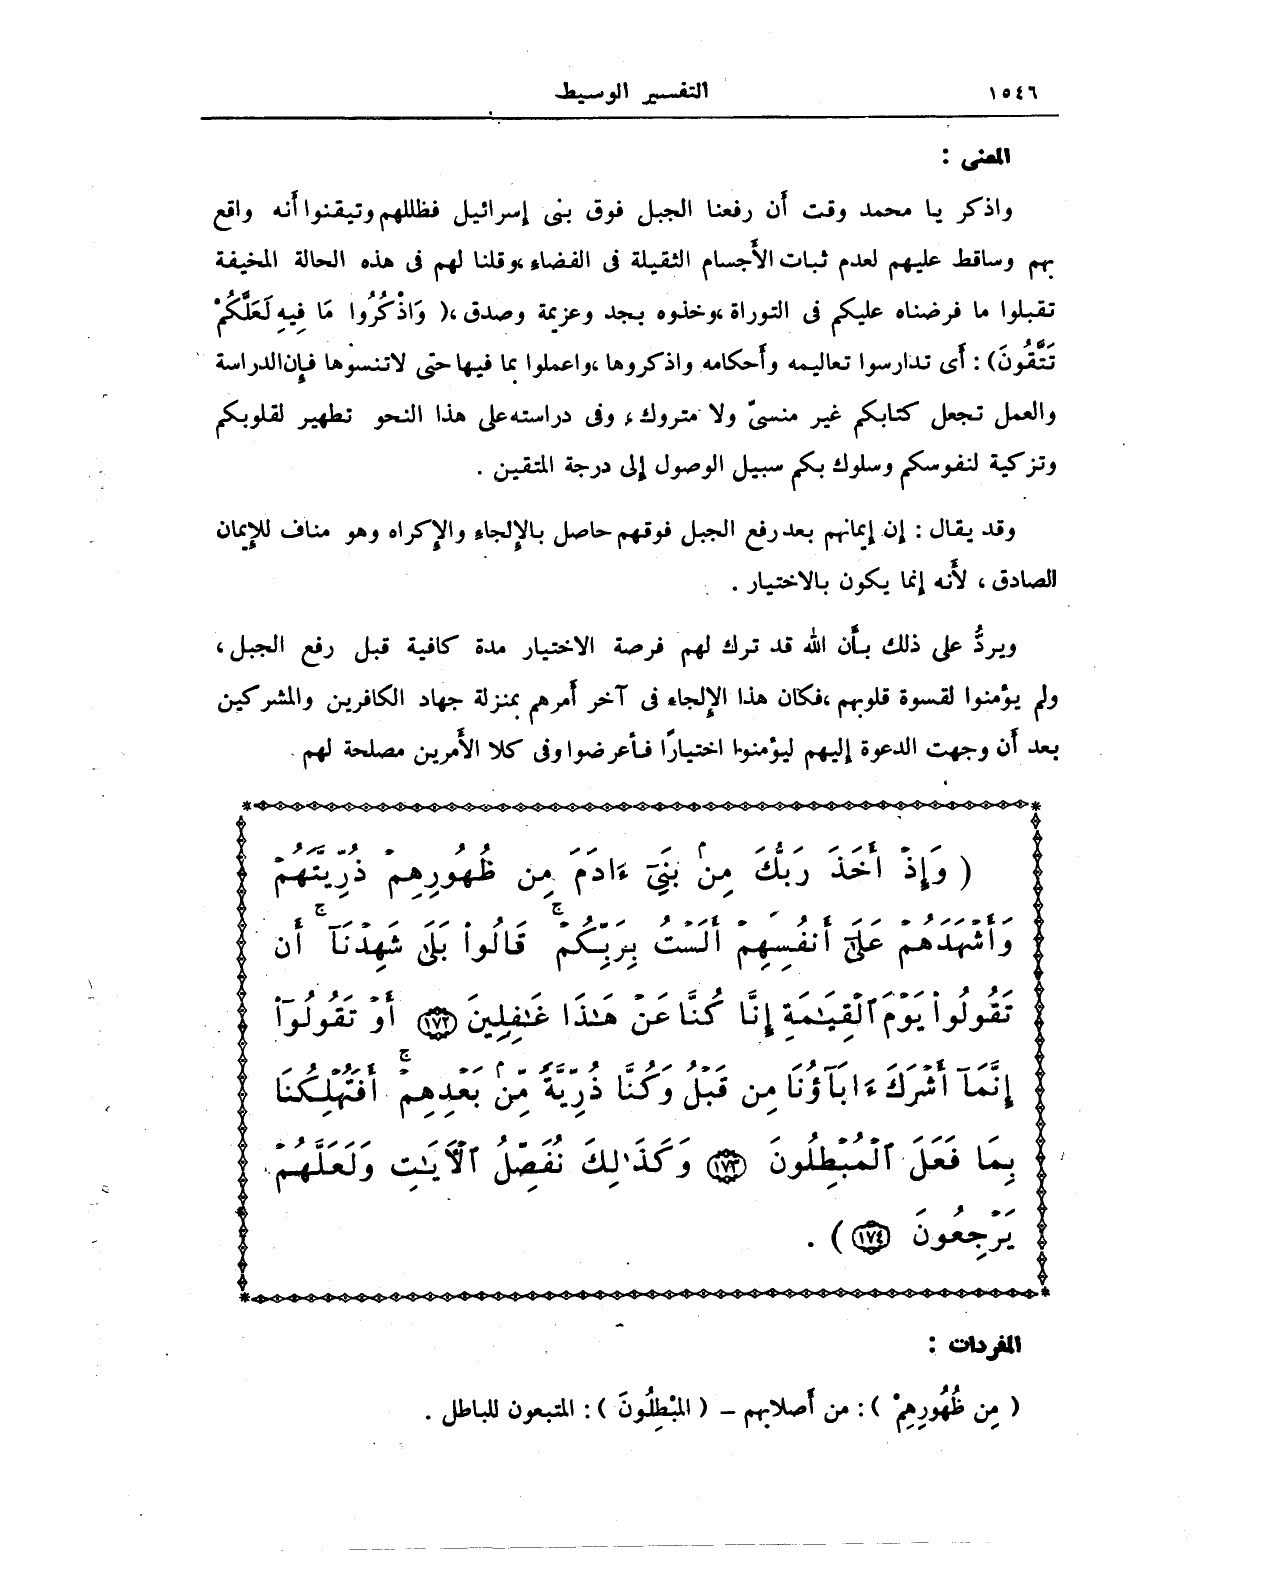 ١٥٤٦ التفسير الوسيط
المعنى :
واذكر يا محمد وقت أن رفعنا الجبل فوق بنى إسرائيل فظللهم وتيقنوا أنه واقع
بهم وساقط عليهم لعدم ثبات الأجسام الثقيلة فى الفضاء ،وقلنا لهم فى هذه الحالة المخيفة
تقبلوا ما فرضناه عليكم فى التوراة ،وخذوه بجد وعزيمة وصدق ،( وَاذْكُرُوا مَا فِيهِ لَعَلَّكُمْ
تَتَّقُونَ) : أى تدارسوا تعاليمه وأحكامه واذكروها ،واعملوا بما فيها حتى لاتنسوها فإن الدراسة
والعمل تجعل كتابكم غير منسىّ ولا متروك ، وفى دراسته على هذا النحو تطهير لقلوبكم
وتزكية لنفوسكم وسلوك بكم سبيل الوصول إلى درجة المتقين .
وقد يقال : إن إيمانهم بعد رفع الجبل فوقهم حاصل بالإلجاء والإكراه وهو مناف للإيمان
الصادق ، لأنه إنما يكون بالاختيار .
ويردُّ على ذلك بأن الله قد ترك لهم فرصة الاختيار مدة كافية قبل رفع الجبل ،
ولم يؤمنوا لقسوة قلوبهم ،فكان هذا الإلجاء فى آخر أمرهم بمنزلة جهاد الكافرين والمشركين
بعد أن وجهت الدعوة إليهم ليؤمنوا اختيارًا فأعرضوا وفى كلا الأمرين مصلحة لهم .
( وَإِذْ أَخَذَ رَبُّكَ مِنۢ بَنِىٓ ءَادَمَ مِن ظُهُورِهِمْ ذُرِّيَّتَهُمْ
وَأَشْهَدَهُمْ عَلَىٰٓ أَنفُسِهِمْ أَلَسْتُ بِرَبِّكُمْ ۖ قَالُوا۟ بَلَىٰ شَهِدْنَآ ۚ أَن
تَقُولُوا۟ يَوْمَ ٱلْقِيَٰمَةِ إِنَّا كُنَّا عَنْ هَٰذَا غَٰفِلِينَ ١٧٢ أَوْ تَقُولُوٓا۟
إِنَّمَآ أَشْرَكَ ءَابَآؤُنَا مِن قَبْلُ وَكُنَّا ذُرِّيَّةً مِّنۢ بَعْدِهِمْ ۖ أَفَتُهْلِكُنَا
بِمَا فَعَلَ ٱلْمُبْطِلُونَ ١٧٣ وَكَذَٰلِكَ نُفَصِّلُ ٱلْـَٔايَٰتِ وَلَعَلَّهُمْ
يَرْجِعُونَ ١٧٤ ) .
المفردات :
( مِن ظُهُورِهِمْ ) : من أصلابهم – ( المُبْطِلُونَ ) : المتبعون للباطل .